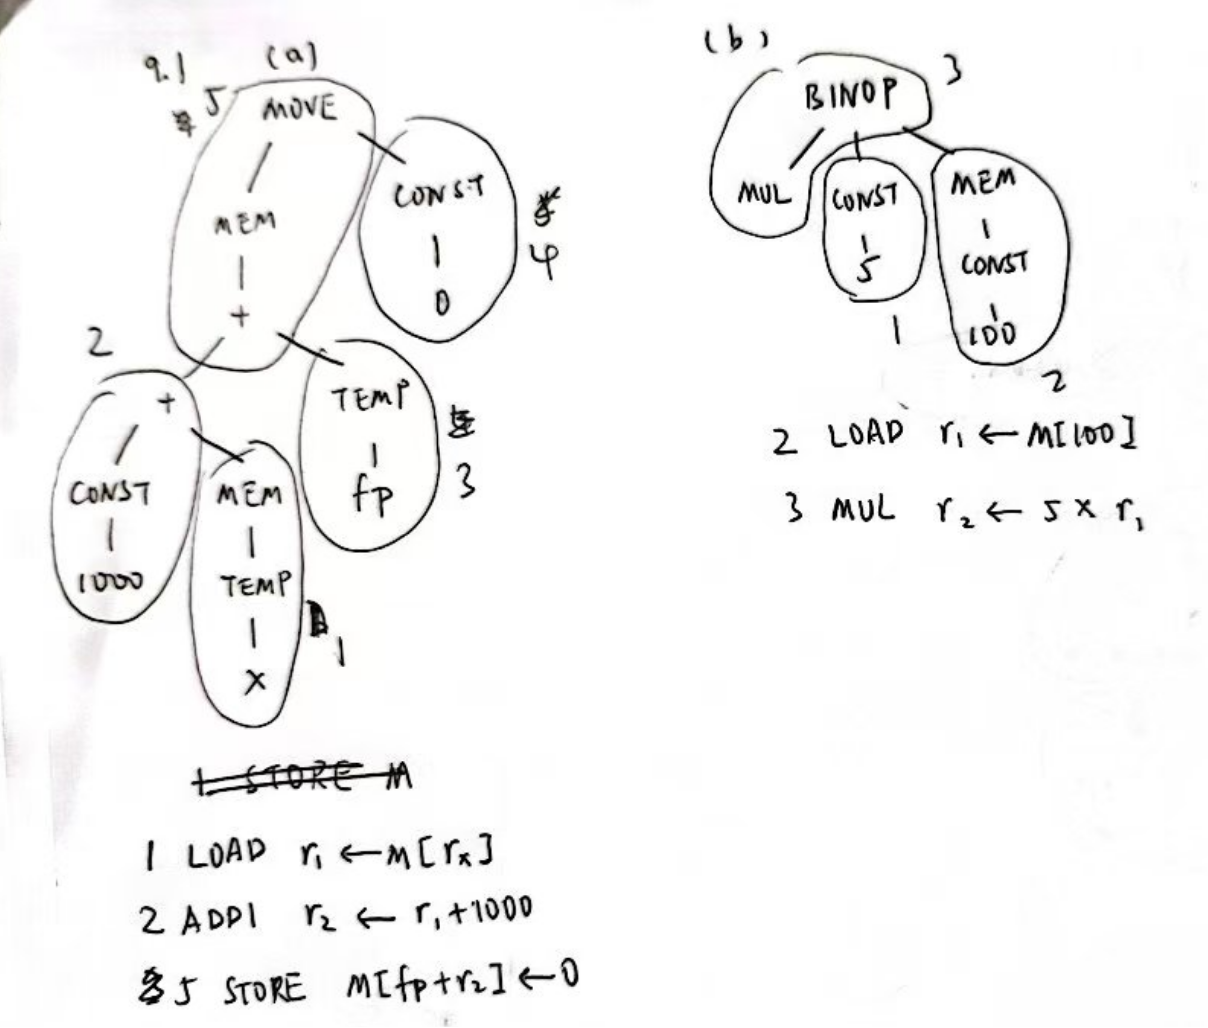 9.1 (a)
5 MOVE
CONST
4
0
MEM
+
2
+
TEMP
3
fp
CONST
1000
MEM
TEMP
1
x
1 STORE M
1 LOAD r₁ ← M[rₓ]
2 ADDI r₂ ← r₁+1000
5 STORE M[fp+r₂] ← 0
(b)
BINOP 3
MUL
CONST
5
1
MEM
CONST
100
2
2 LOAD r₁ ← M[100]
3 MUL r₂ ← 5 × r₁